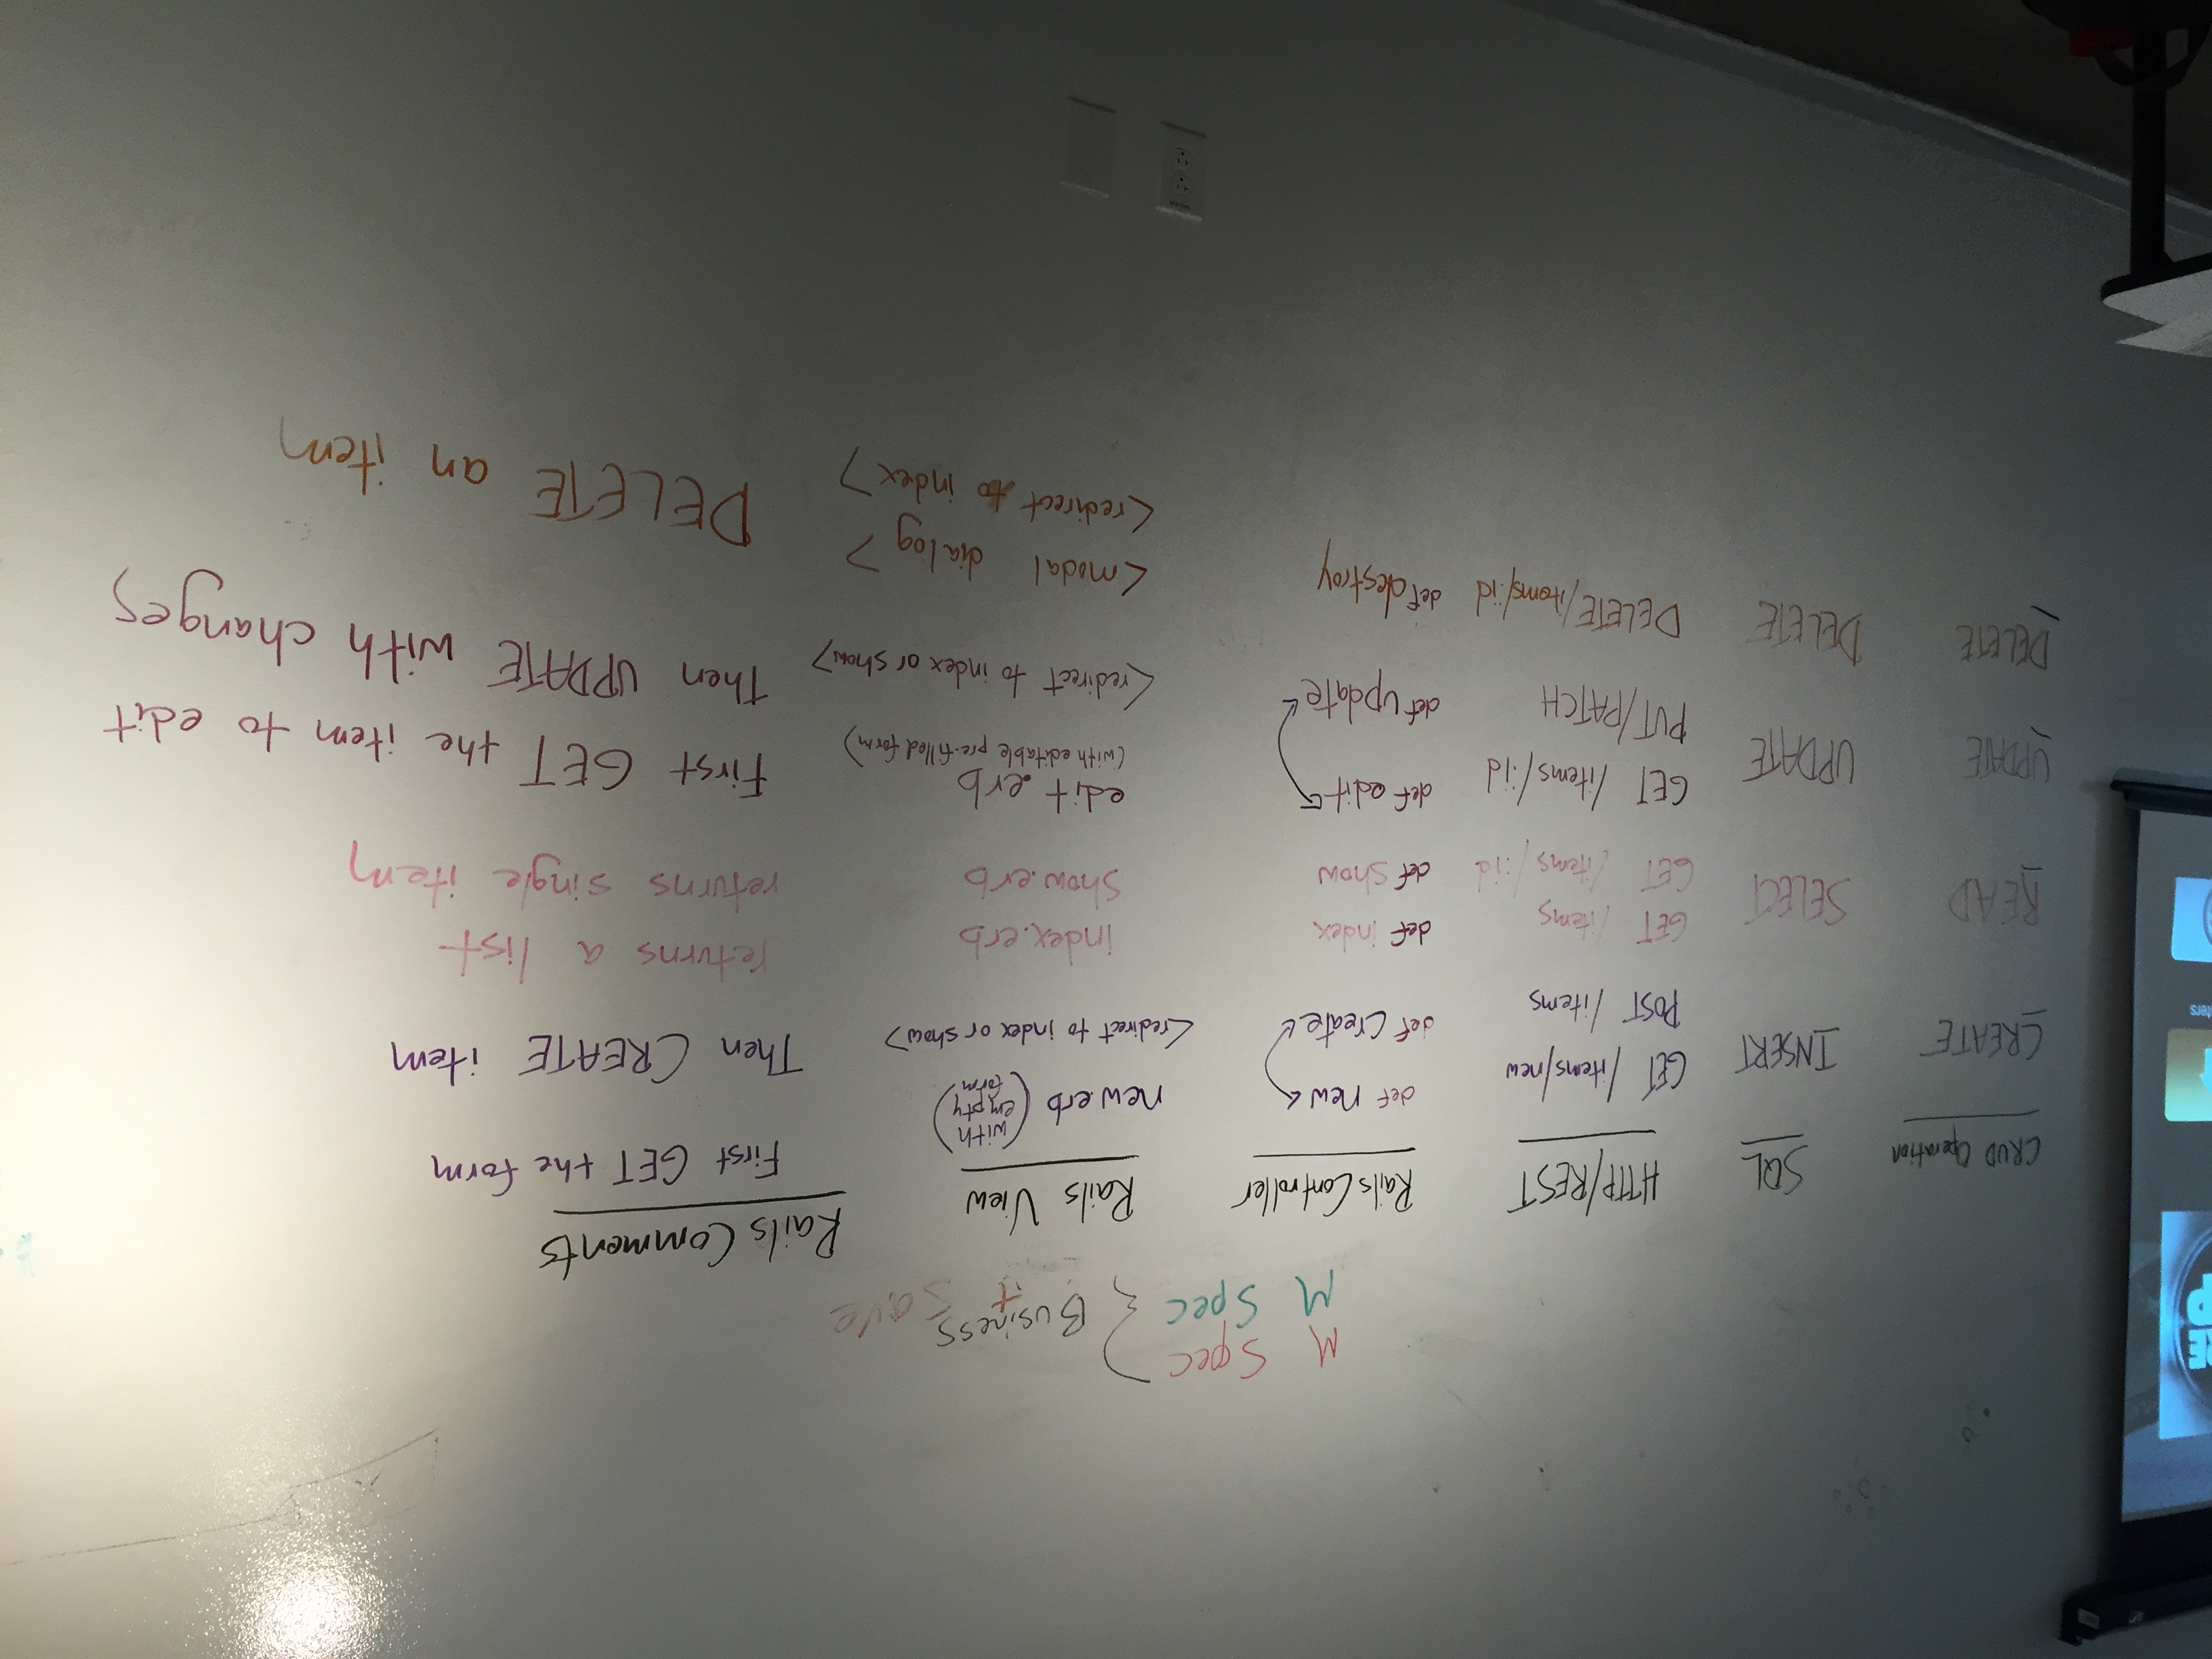 M Spec
M Spec
Business
+ Save
CRUD Operation SQL HTTP/REST Rails Controller Rails View Rails Comments
CREATE INSERT GET /items/new def new new.erb (with empty form) First GET the form
POST /items def create <redirect to index or show> Then CREATE item
READ SELECT GET /items def index index.erb returns a list
GET /items/:id def show show.erb returns single item
UPDATE UPDATE GET /items/:id def edit edit.erb First GET the item to edit
(with editable pre-filled form)
PUT/PATCH def update <redirect to index or show> Then UPDATE with changes
DELETE DELETE DELETE/items/:id def destroy <modal dialog> DELETE an item
<redirect to index>